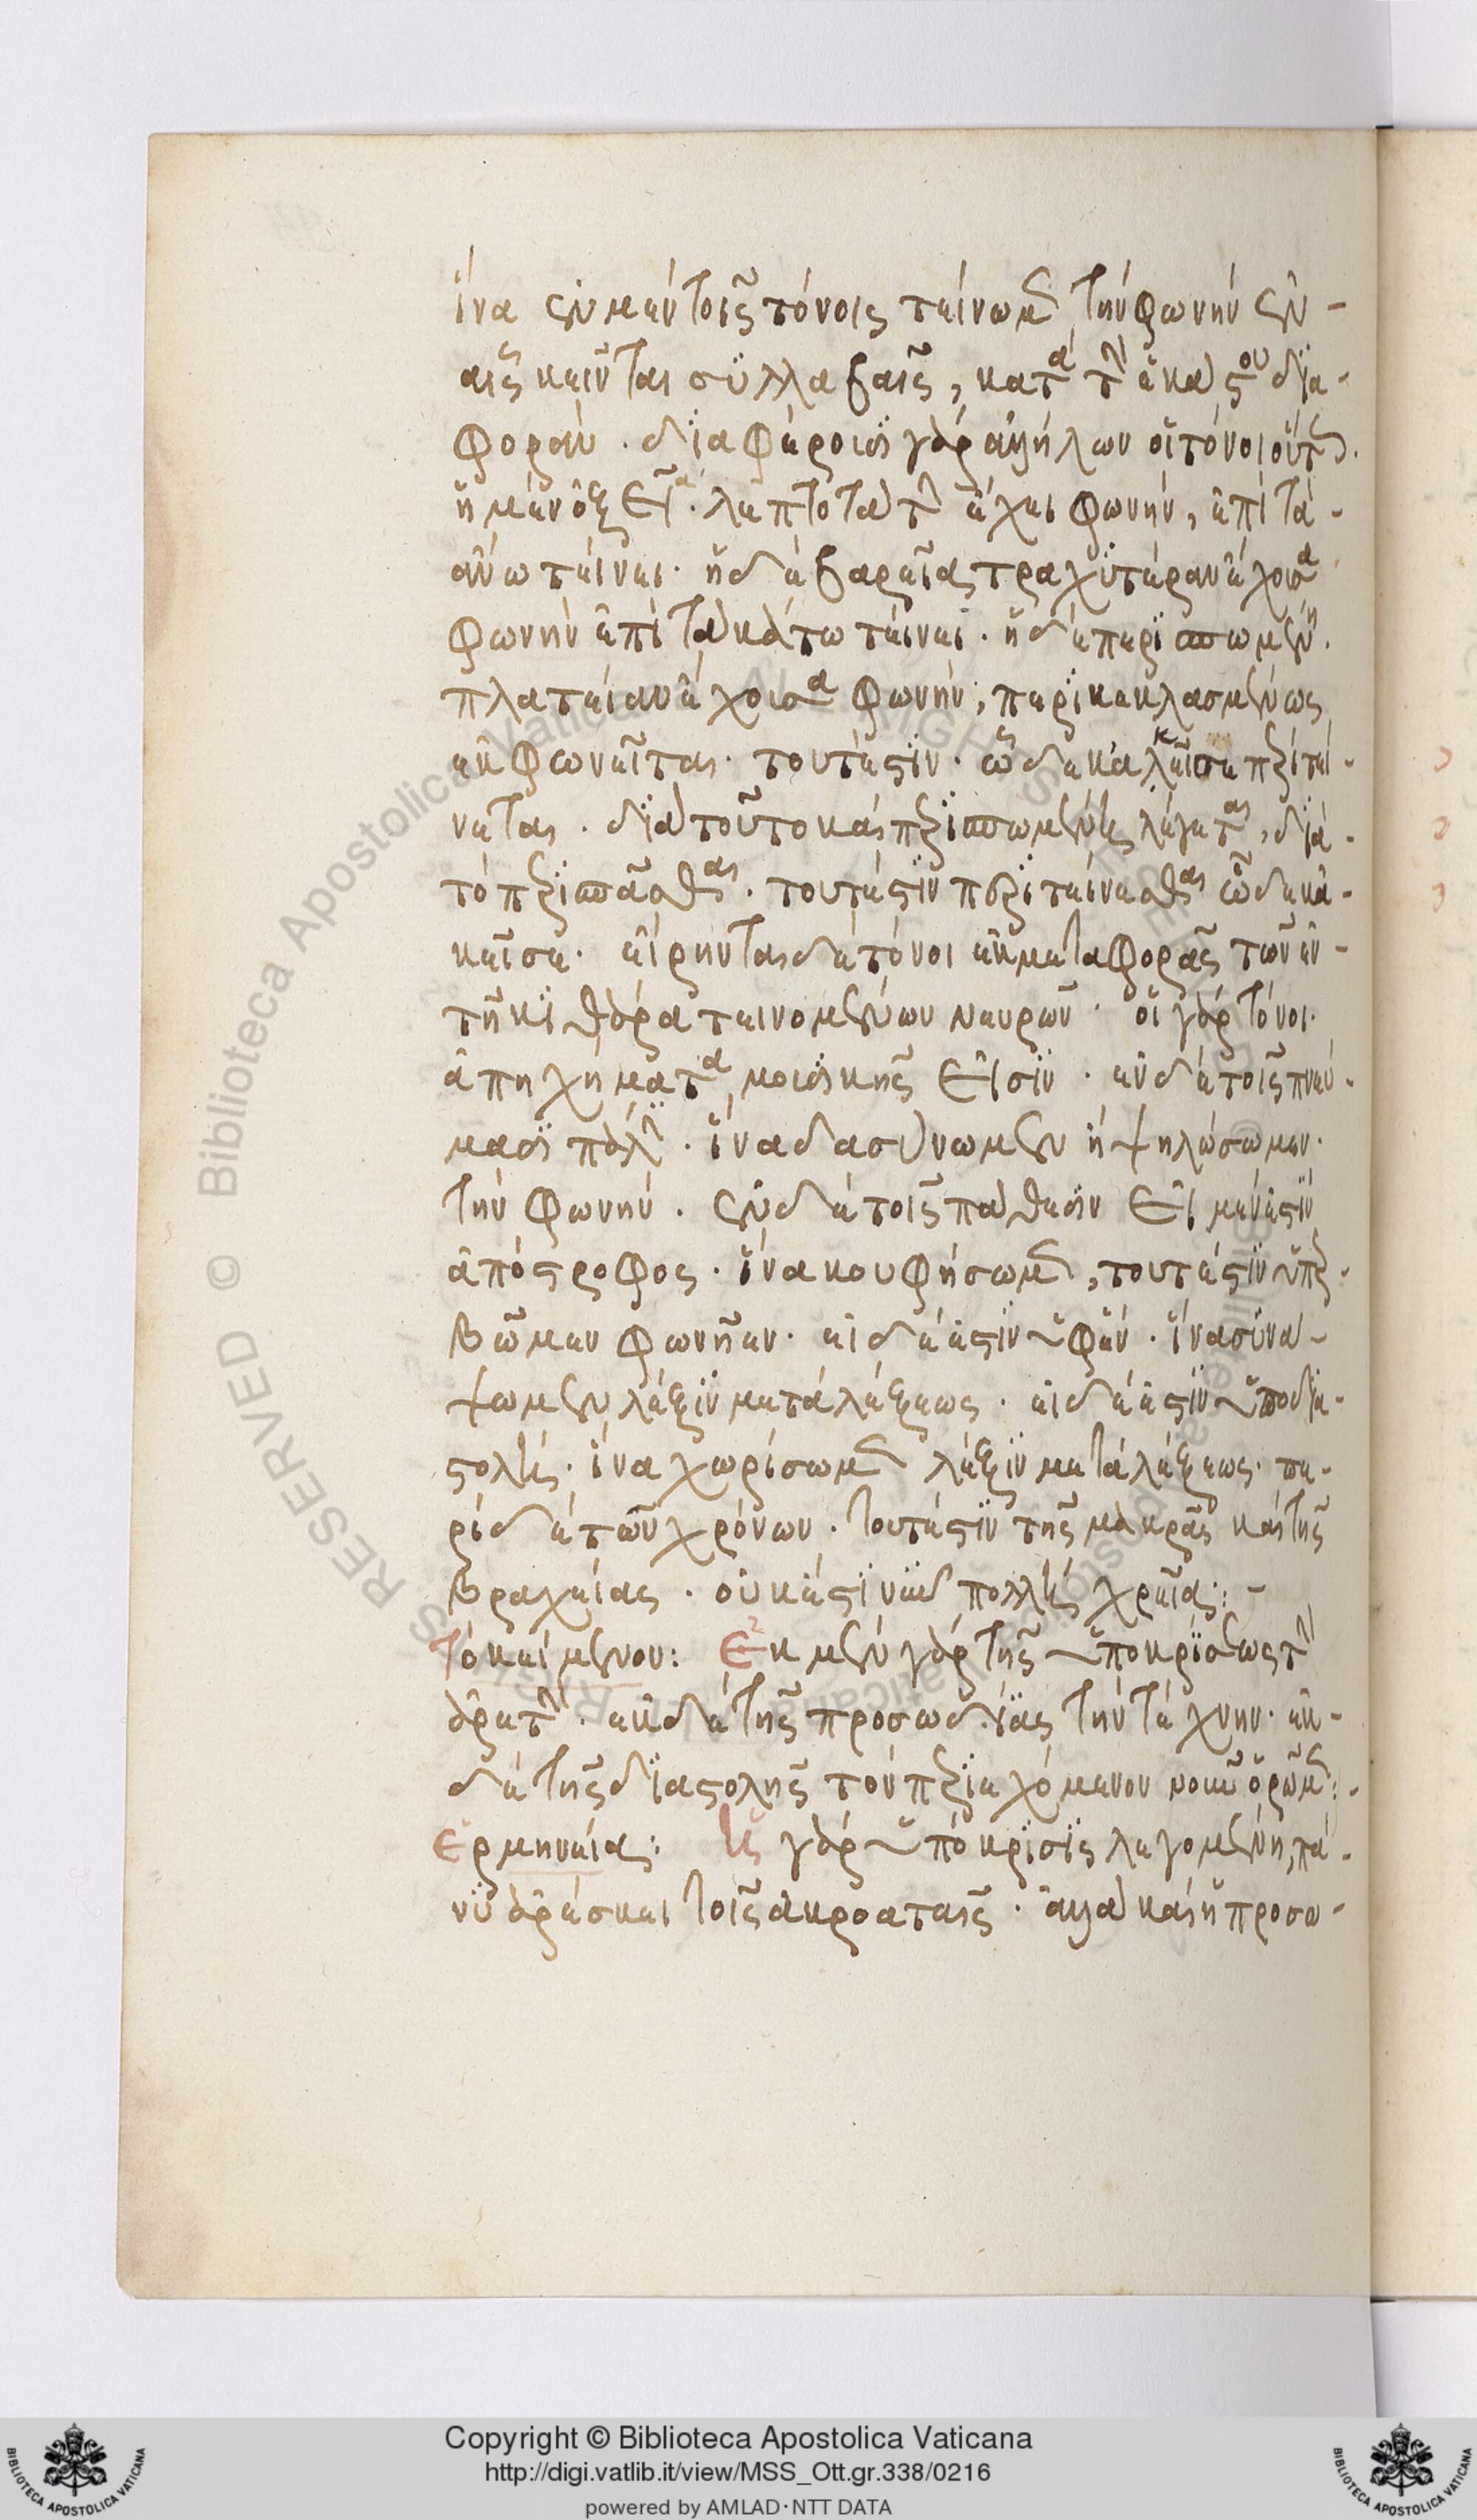 ἵνα ἐν μὲν τοῖς τόνοις τείνωμεν τὴν φωνὴν ἐν-
αἷς κεῖνται συλλαβαῖς, κατὰ τὴν ἑκάστου δια-
φοράν. διαφέρουσι γὰρ ἀλλήλων οἱ τόνοι οὕτως.
ἡ μὲν ὀξεῖα. λεπτοτάτην ἔχει φωνὴν, ἐπὶ τὰ-
ἄνω τείνει. ἡ δὲ βαρεῖα τραχυτέραν ἔχουσα
φωνὴν ἐπὶ τὰ κάτω τείνει. ἡ δὲ περισπωμένη.
πλατεῖαν ἔχουσα φωνὴν, περικεκλασμένως
ἐκφωνεῖται. τουτέστιν. ὧδε κἀκεῖσε περιτεί-
νεται. διὰ τοῦτο καὶ περισπωμένη λέγεται, διὰ-
τὸ περισπᾶσθαι. τουτέστιν περιτείνεσθαι ὧδε κἀ-
κεῖσε. εἴρηνται δὲ τόνοι ἐκ μεταφορᾶς τῶν ἐν-
τῇ κιθάρα τεινομένων νευρῶν. οἱ γὰρ τόνοι.
ἀπηχήματα μουσικῆς εἰσίν. ἐν δὲ τοῖς πνεύ-
μασι πάλιν. ἵνα δασύνωμεν ἢ ψηλώσωμεν.
τὴν φωνήν. ἐν δὲ τοῖς πάθεσιν εἰ μὲν ἐστὶν
ἀπόστροφος. ἵνα κουφήσωμεν, τουτέστιν ὑπερ-
βῶμεν φωνῆεν. εἰ δέ ἐστιν ὑφέν. ἵνα συνά-
ψωμεν λέξιν μετὰ λέξεως. εἰ δέ ἐστιν ὑποδια-
στολὴ. ἵνα χωρίσωμεν λέξιν μετὰ λέξεως. πε-
ρὶ δὲ τῶν χρόνων. τουτέστιν τῆς μακρᾶς καὶ τῆς
βραχείας. οὐκ ἔστιν πολλὴ χρεία: -
Τὸ κείμενον: Ἐκ μὲν γὰρ τῆς ὑποκρίσεως τὴν
ἀρετήν. ἐκ δὲ τῆς προσωδίας τὴν τέχνην. ἐκ-
δὲ τῆς διαστολῆς τὸν περιεχόμενον νοῦν ὁρῶμεν: -
Ἑρμηνεία: Ἡ γὰρ ὑπόκρισις λεγομένη, πά-
νυ ἀρέσκει τοῖς ἀκροαταῖς. ἀλλὰ καὶ ἡ προσω-
Copyright © Biblioteca Apostolica Vaticana
http://digi.vatlib.it/view/MSS_Ott.gr.338/0216
powered by AMLAD·NTT DATA